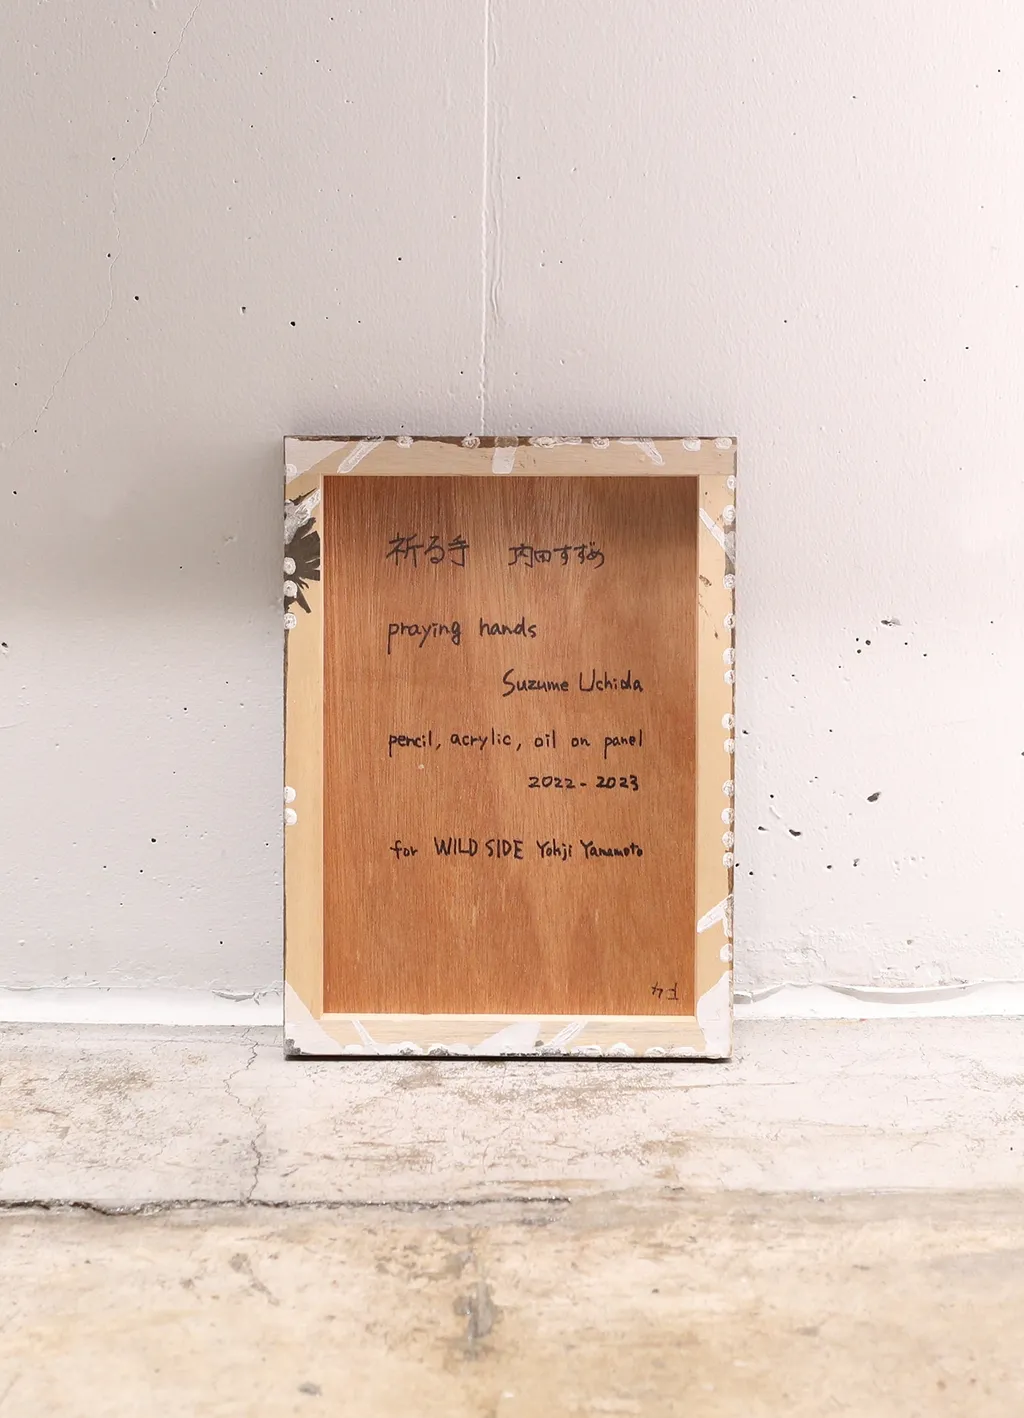 祈る手 内田すずめ
praying hands
Suzume Uchida
pencil, acrylic, oil on panel
2022-2023
for WILD SIDE Yohji Yamamoto